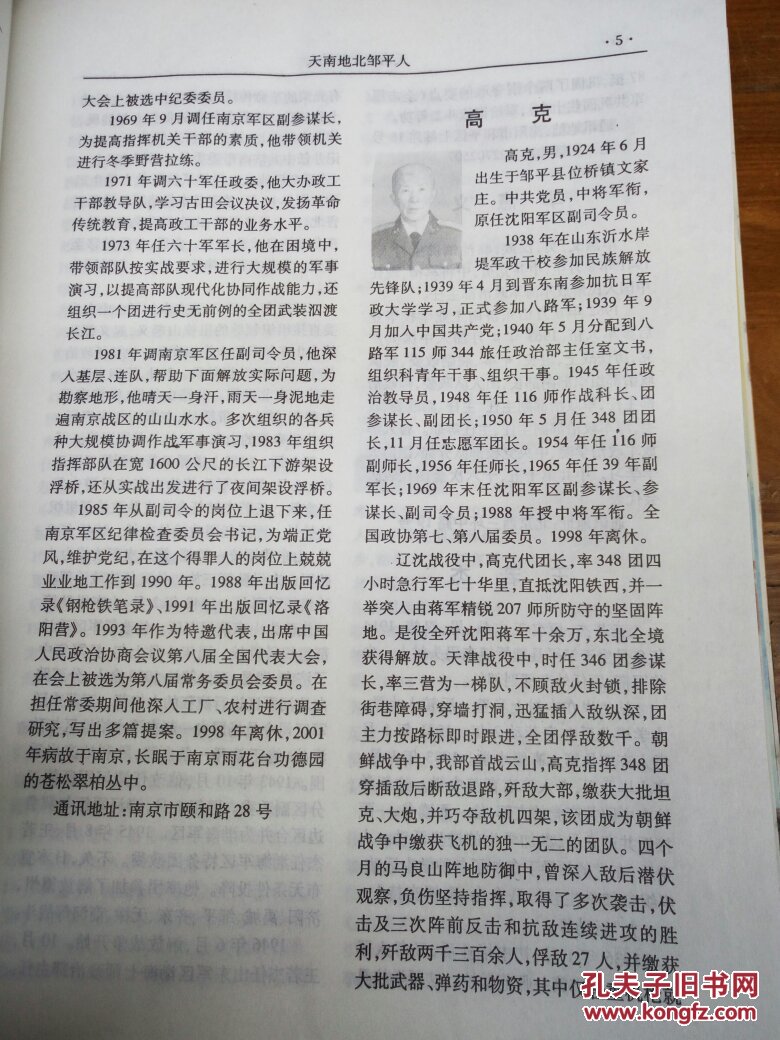 ·5·
天南地北邹平人
大会上被选中纪委委员。
1969年9月调任南京军区副参谋长，
为提高指挥机关干部的素质，他带领机关
进行冬季野营拉练。
1971年调六十军任政委，他大办政工
干部教导队，学习古田会议决议，发扬革命
传统教育，提高政工干部的业务水平。
1973年任六十军军长，他在困境中，
带领部队按实战要求，进行大规模的军事
演习，以提高部队现代化协同作战能力，还
组织一个团进行史无前例的全团武装泅渡
长江。
1981年调南京军区任副司令员，他深
入基层、连队，帮助下面解放实际问题，为
勘察地形，他晴天一身汗，雨天一身泥地走
遍南京战区的山山水水。多次组织的各兵
种大规模协调作战军事演习，1983年组织
指挥部队在宽1600公尺的长江下游架设
浮桥，还从实战出发进行了夜间架设浮桥。
1985年从副司令的岗位上退下来，任
南京军区纪律检查委员会书记，为端正党
风，维护党纪，在这个得罪人的岗位上兢兢
业业地工作到1990年。1988年出版回忆
录《钢枪铁笔录》、1991年出版回忆录《洛
阳营》。1993年作为特邀代表，出席中国
人民政治协商会议第八届全国代表大会，
在会上被选为第八届常务委员会委员。在
担任常委期间他深入工厂、农村进行调查
研究，写出多篇提案。1998年离休，2001
年病故于南京，长眠于南京雨花台功德园
的苍松翠柏丛中。
通讯地址：南京市颐和路28号
高 克
高克，男，1924年6月
出生于邹平县位桥镇文家
庄。中共党员，中将军衔，
原任沈阳军区副司令员。
1938年在山东沂水岸
堤军政干校参加民族解放
先锋队；1939年4月到晋东南参加抗日军
政大学学习，正式参加八路军；1939年9
月加入中国共产党；1940年5月分配到八
路军115师344旅任政治部主任室文书，
组织科青年干事、组织干事。1945年任政
治教导员，1948年任116师作战科长、团
参谋长、副团长；1950年5月任348团团
长，11月任志愿军团长。1954年任116师
副师长，1956年任师长，1965年任39年副
军长；1969年末任沈阳军区副参谋长、参
谋长、副司令员；1988年授中将军衔。全
国政协第七、第八届委员。1998年离休。
辽沈战役中，高克代团长，率348团四
小时急行军七十华里，直抵沈阳铁西，并一
举突人由蒋军精锐207师所防守的坚固阵
地。是役全歼沈阳蒋军十余万，东北全境
获得解放。天津战役中，时任346团参谋
长，率三营为一梯队，不顾敌火封锁，排除
街巷障碍，穿墙打洞，迅猛插人敌纵深，团
主力按路标即时跟进，全团俘敌数千。朝
鲜战争中，我部首战云山，高克指挥348团
穿插敌后断敌退路，歼敌大部，缴获大批坦
克、大炮，并巧夺敌机四架，该团成为朝鲜
战争中缴获飞机的独一无二的团队。四个
月的马良山阵地防御中，曾深人敌后潜伏
观察，负伤坚持指挥，取得了多次袭击，伏
击及三次阵前反击和抗敌连续进攻的胜
利，歼敌两千三百余人，俘敌27人，并缴获
大批武器、弹药和物资，其中仅
孔夫子旧书网
www.kongfz.com